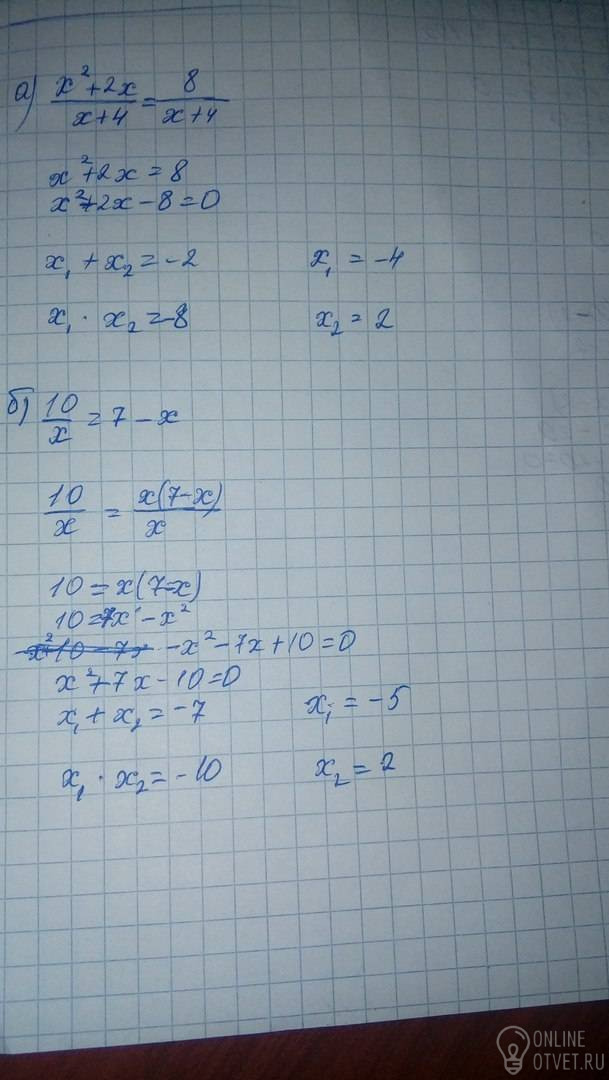 а) x²+2x / x+4 = 8 / x+4
x²+2x=8
x²+2x-8=0
x₁+x₂=-2 x₁=-4
x₁·x₂=-8 x₂=2
б) 10/x=7-x
10/x = x(7-x)/x
10=x(7-x)
10=7x-x²
-x²-7x+10=0
x²+7x-10=0
x₁+x₂=-7 x₁=-5
x₁·x₂=-10 x₂=2
ONLINE
OTVET.RU